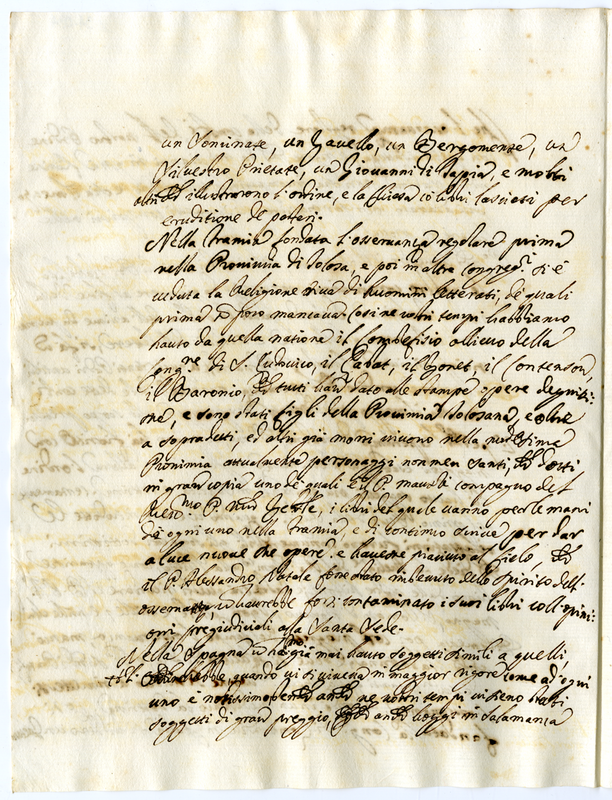 un Soncinate, un Zavello, un Bergomense, un
Silvestro Prietate, un Giovanni di Taggia, e molti
altri illustrorono l'ordine, e la chiesa co libri lasciati per
eruditione de posteri.
Nella francia fondata l'osservanza regolare prima
nella Provincia di Tolosa, e poi in altre congreg.i si è
veduta la Religione viva di huomini letterati, de quali
prima poco mancava. Così ne nostri tempi habbiamo
hauto da quella natione il Combefisio allievo della
Cong.ne di S. Ludovico, il il Gonet, il Contenson,
il Baronio, tutti dato alle stampe opere degnissi-
me, e sono stati figli della Provincia Tolosana, e oltre
a sopradetti, ed altri già morti vivono nella medesima
Provincia attualmente personaggi non men santi, dotti
in gran copia uno de quali è il P. compagno del
Reve.mo P. i libri del quale vanno per le mani
di ogni uno nella francia, e di continuo scrive per dar
a luce nuove opere. e havesse piaciuto al Cielo,
il P. Alessandro Natale fosse stato imbevuto dello spirito dell'
osservanza, haurebbe contaminato i suoi libri coll'opini-
oni pregiudiciali alla Santa Sede.
Nella Spagna già mai hauto soggetti simili a quelli,
quando vi si viveva in maggior rigore come ad ogni
uno è notissimo ne nostri tempi vi sieno stati
soggetti di gran preggio, hoggi in Salamanca